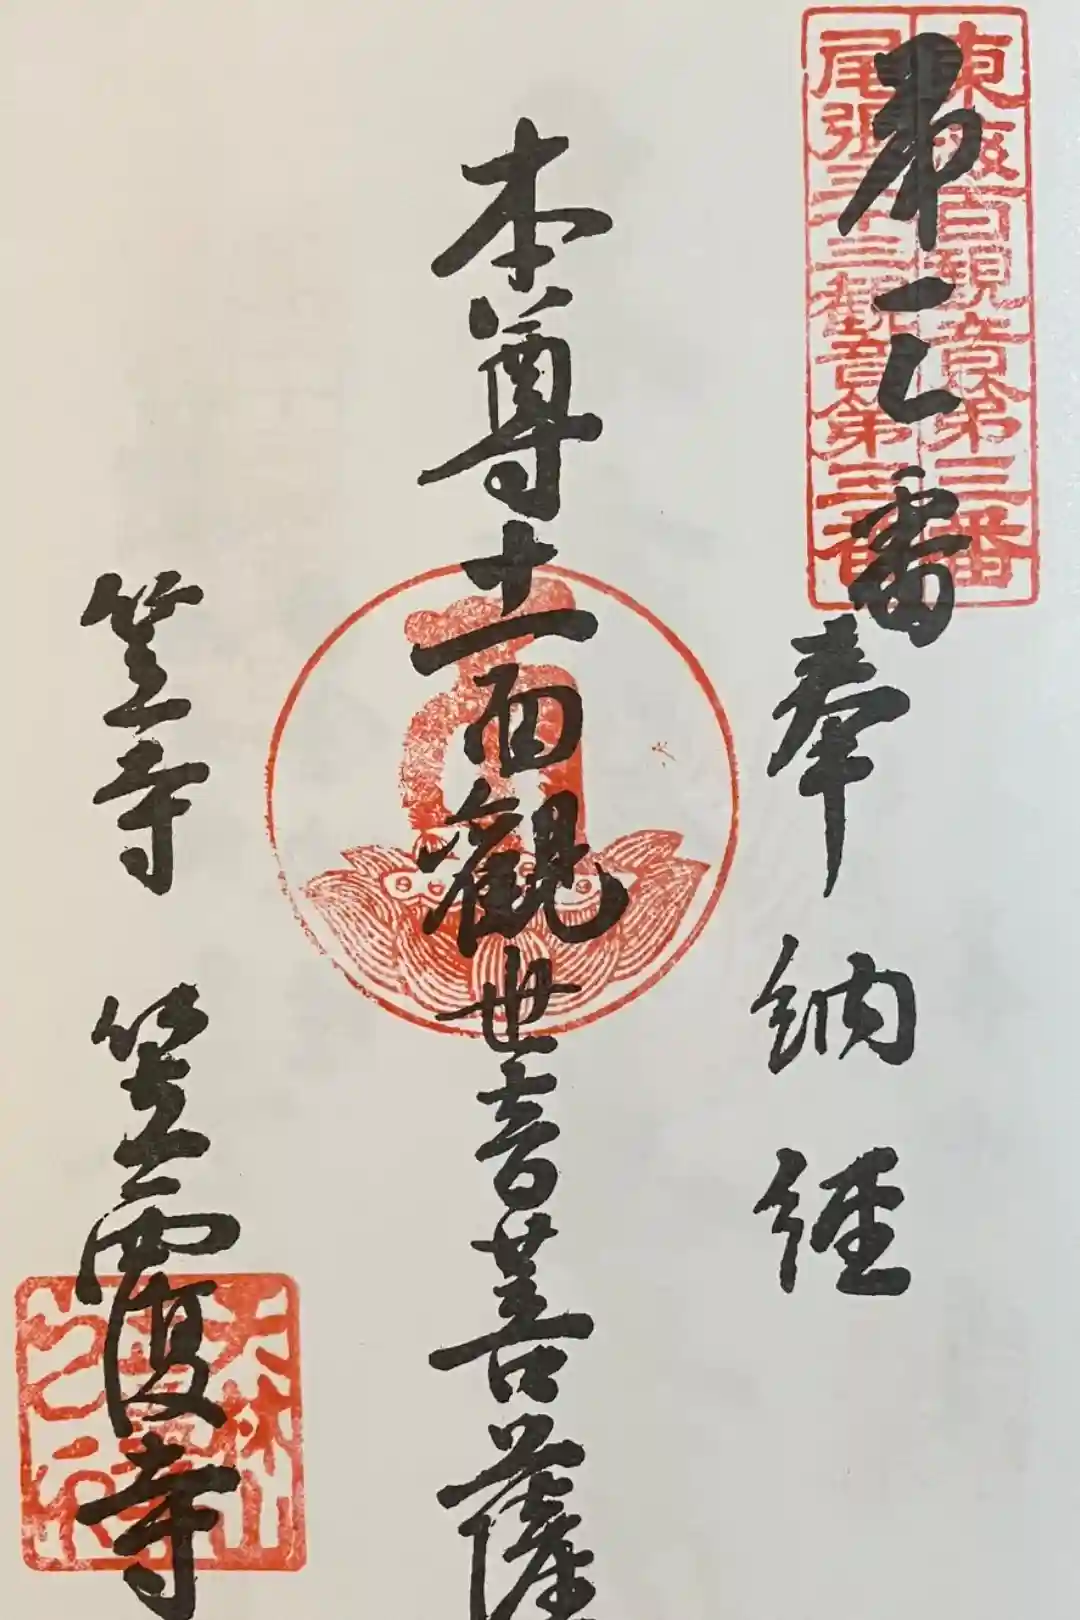 東海百観音第三番
尾張三十三観音第三番
第三番
奉納経
本尊十一面觀世音菩薩
笠寺 笠覆寺